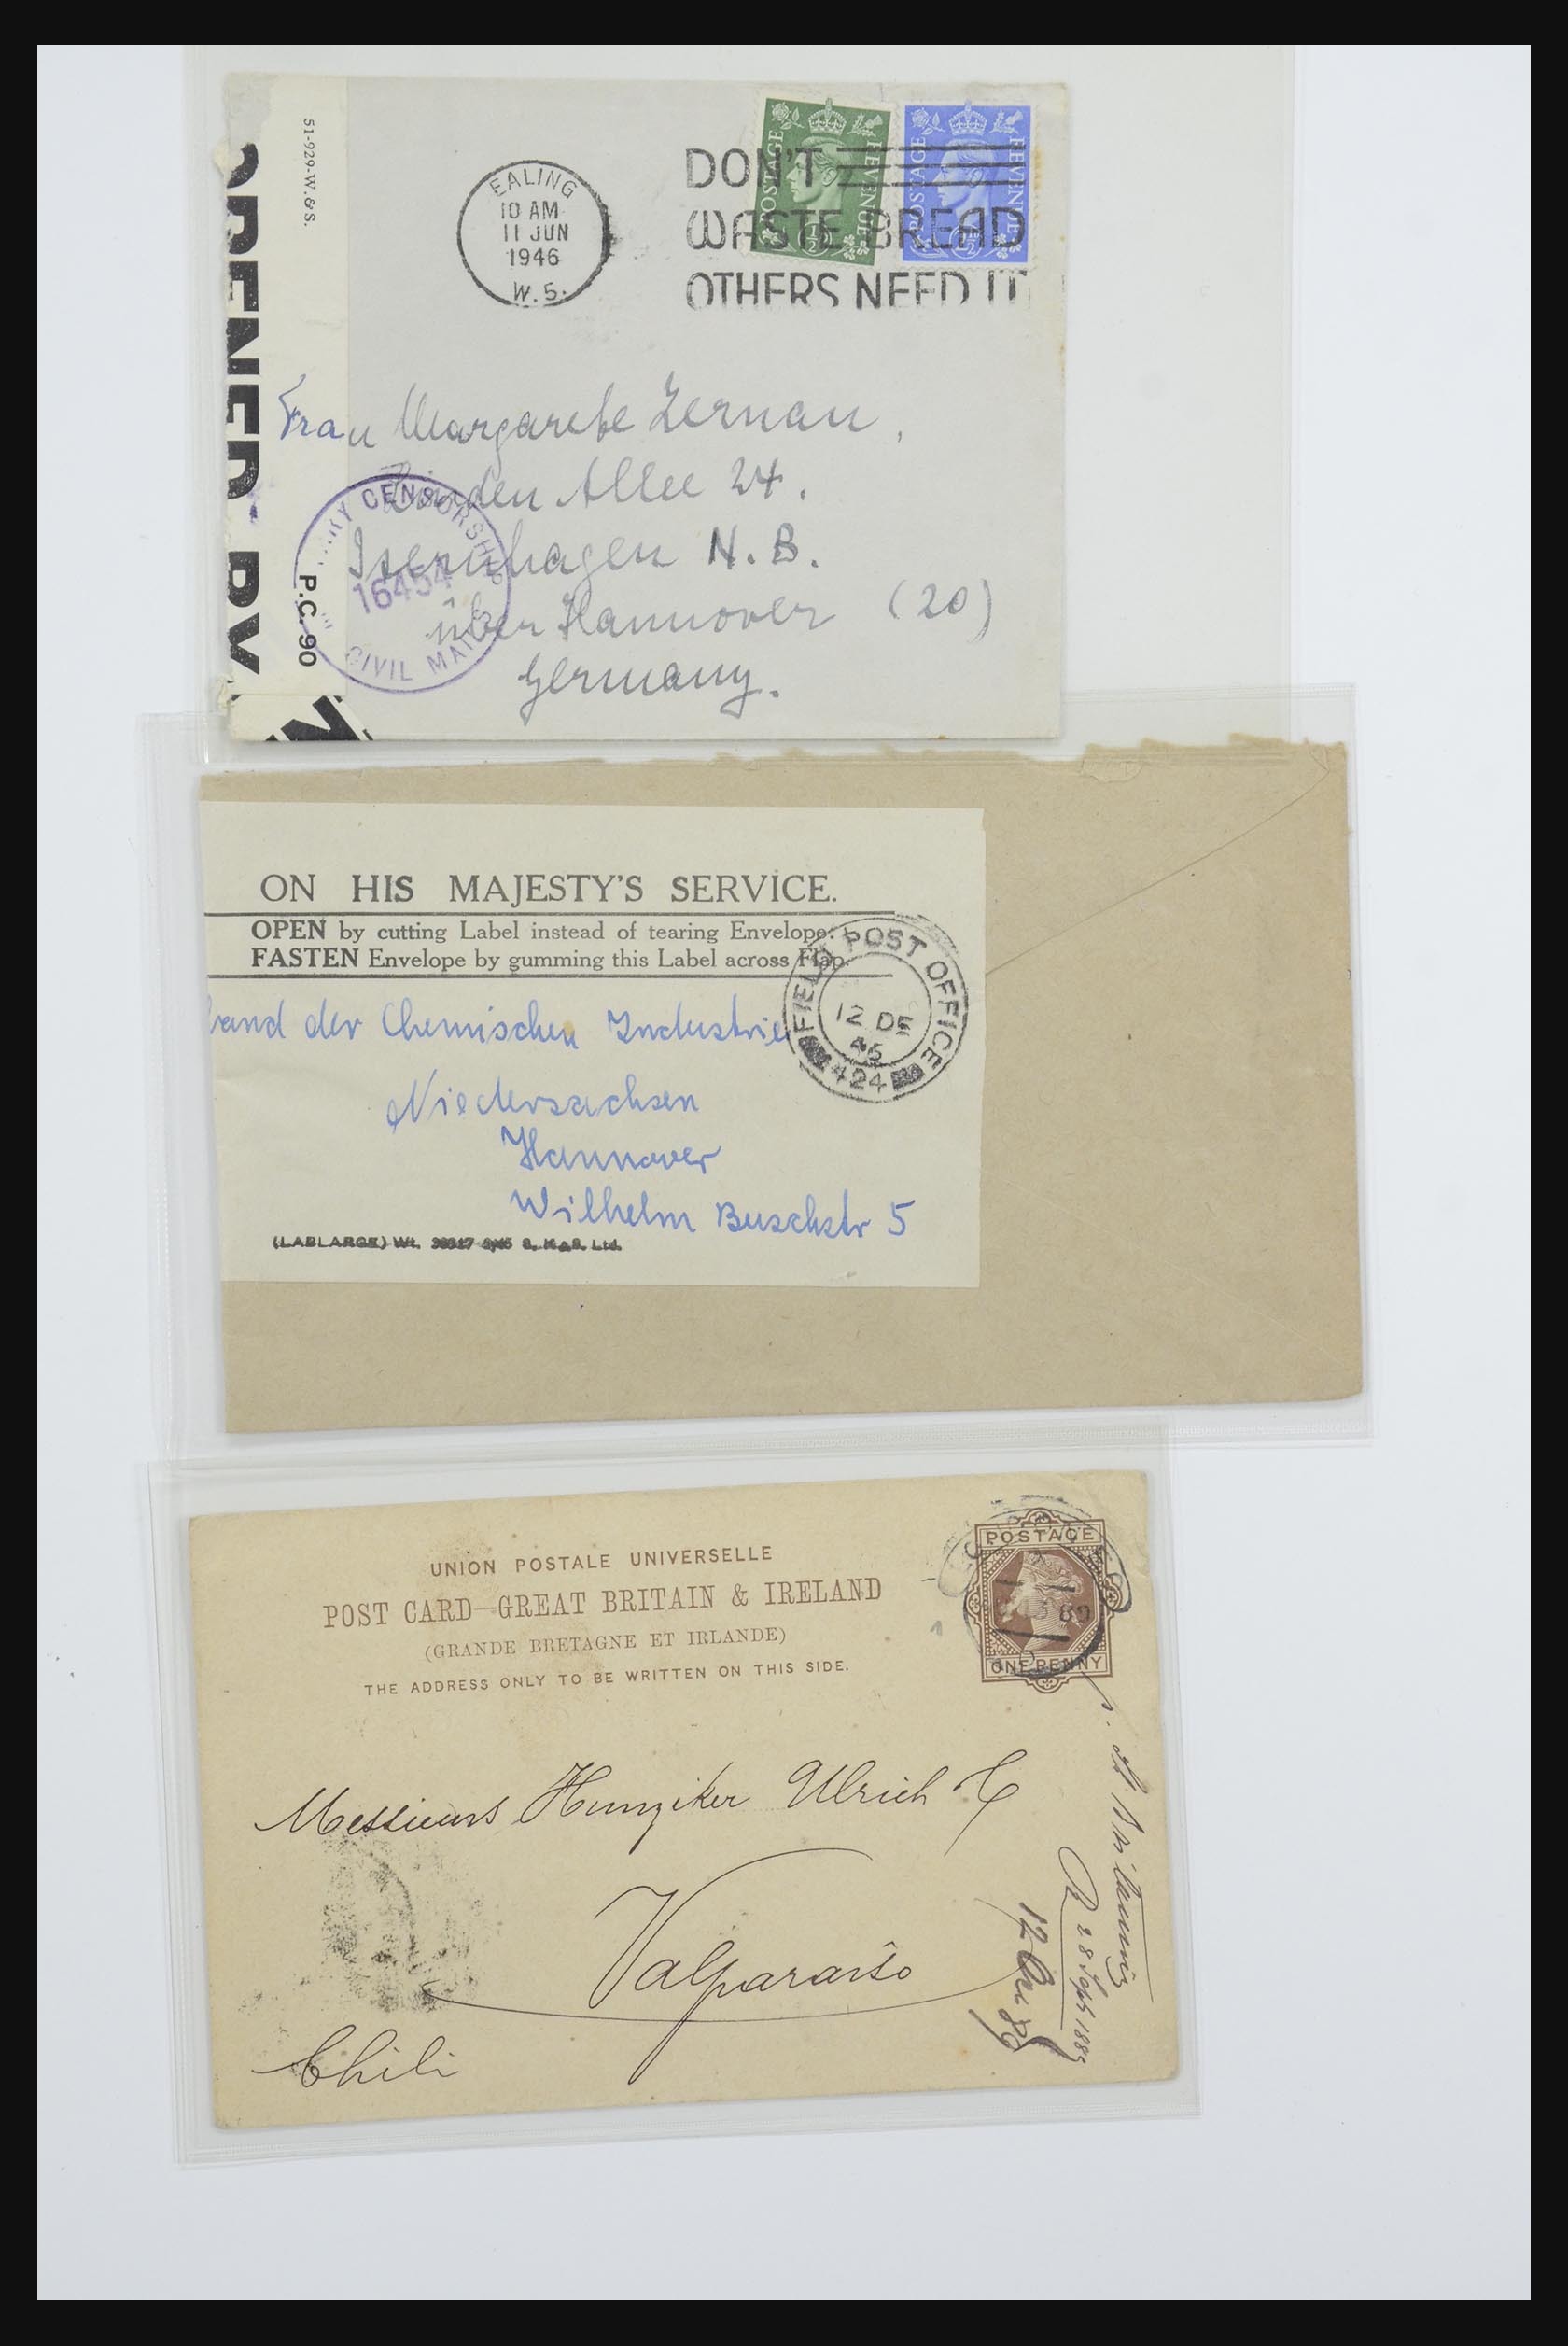 51-929-W.&S.
OPENER BY
P.C. 90
EALING
10 AM
11 JUN
1946
W.5.
POSTAGE REVENUE
POSTAGE REVENUE
DON'T
WASTE BREAD
OTHERS NEED IT
Frau Margarete Zernau,
Linden Allee 24.
Isernhagen N.B.
über Hannover (20)
Germany.
CENSORSHIP
16454
CIVIL MAILS
ON HIS MAJESTY'S SERVICE.
OPEN by cutting Label instead of tearing Envelope.
FASTEN Envelope by gumming this Label across Flap.
FIELD POST OFFICE
12 DE
45
424
band der Chemischen Industrie
Niedersachsen
Hannover
Wilhelm Buschstr 5
(LABLARGE) Wt.
UNION POSTALE UNIVERSELLE
POST CARD—GREAT BRITAIN & IRELAND
(GRANDE BRETAGNE ET IRLANDE)
THE ADDRESS ONLY TO BE WRITTEN ON THIS SIDE.
POSTAGE
ONE PENNY
Messieurs Hunziker Ulrich
Valparaiso
Chili
28 Sept 1889